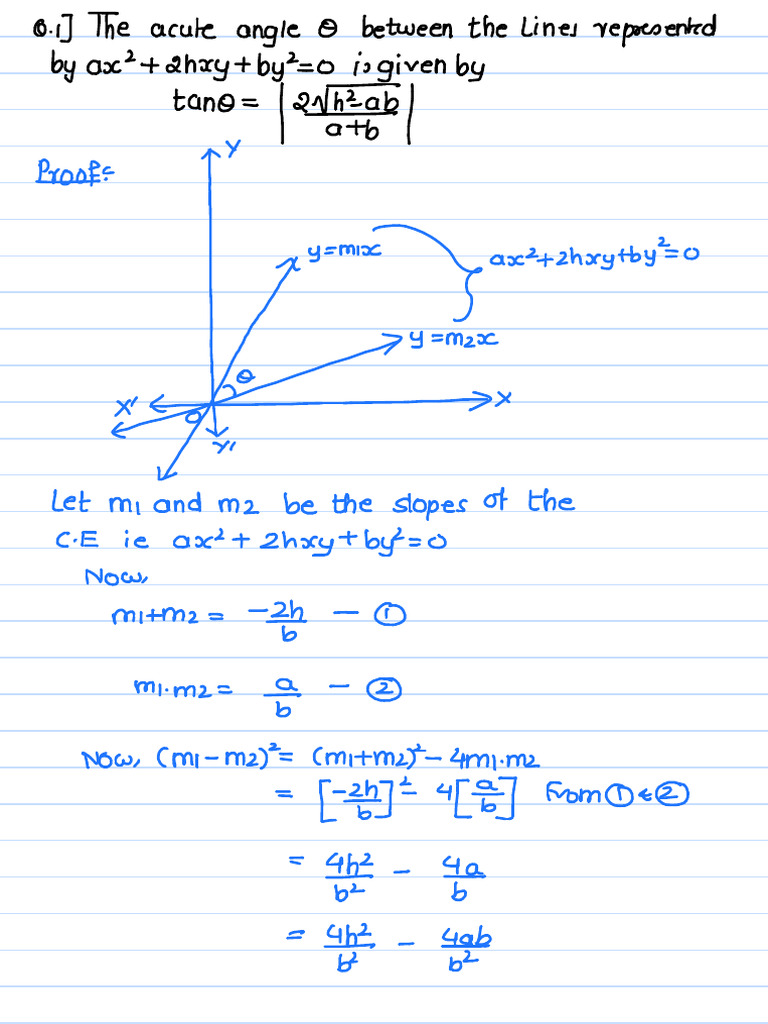 Q.1] The acute angle θ between the Lines represented
by ax²+2hxy+by²=0 is given by
tanθ = |2√h²-ab / a+b|
Proof:
Y
y=m1x
ax²+2hxy+by²=0
y=m2x
θ
X' X
O
Y'
Let m1 and m2 be the slopes of the
C.E ie ax²+2hxy+by²=0
Now,
m1+m2 = -2h/b — ①
m1.m2 = a/b — ②
Now, (m1-m2)² = (m1+m2)² - 4m1.m2
= [-2h/b]² - 4[a/b] From ① & ②
= 4h²/b² - 4a/b
= 4h²/b² - 4ab/b²